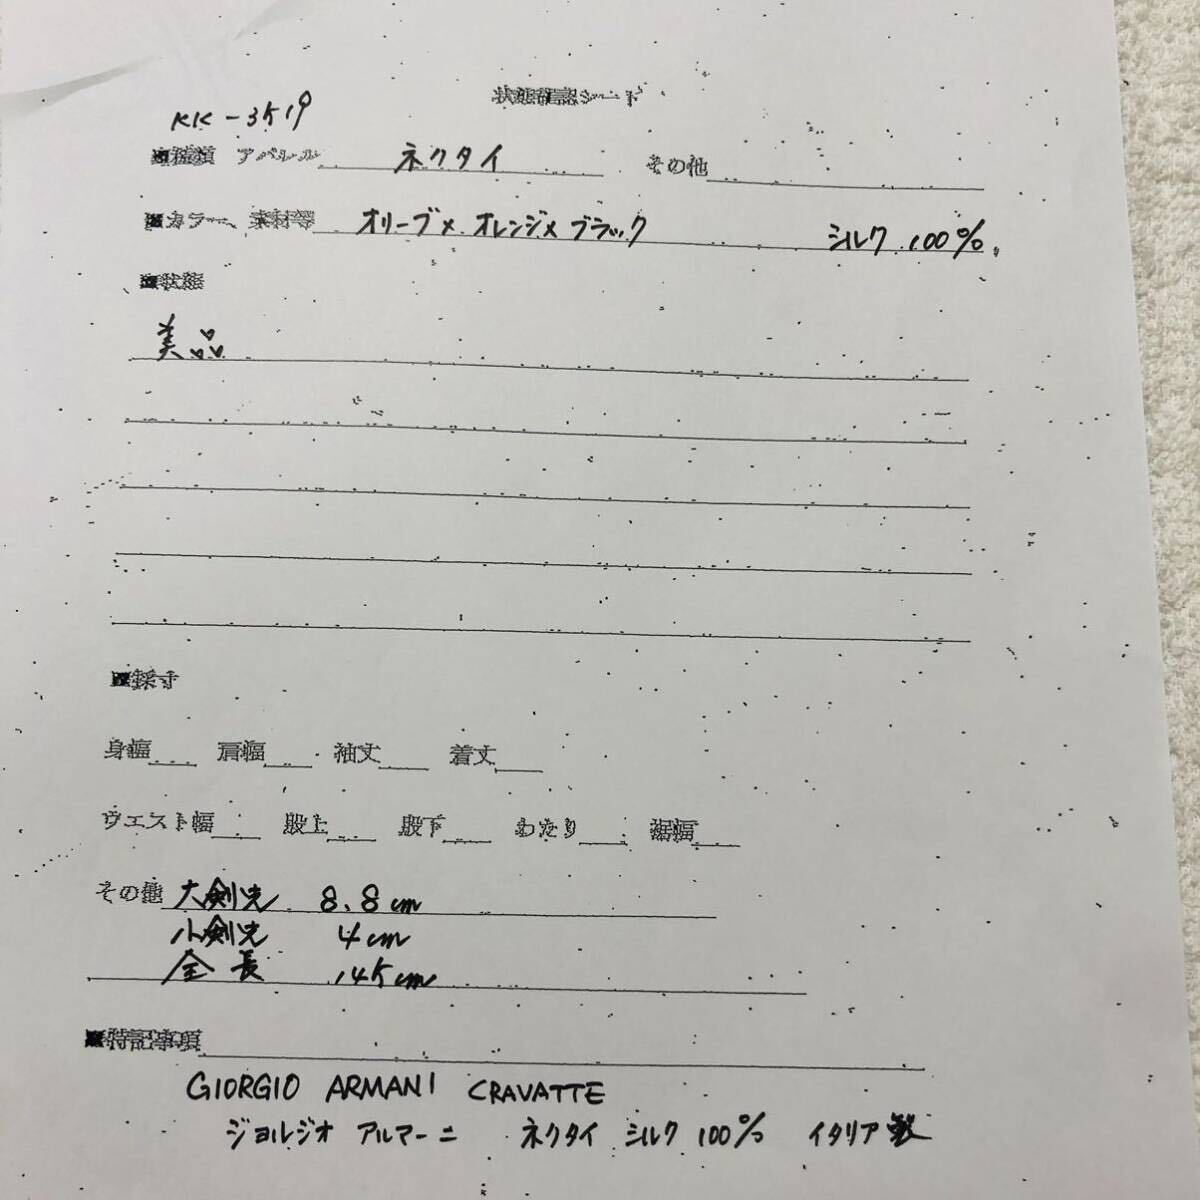 状態確認シート
KK-3519
■種類 アパレル ネクタイ その他
■カラー、素材等 オリーブ×オレンジ×ブラック シルク 100%
■状態
美品
■採寸
身幅 肩幅 袖丈 着丈
ウエスト幅 股上 股下 わたり 裾幅
その他 大剣先 8.8cm
小剣先 4cm
全長 145cm
■特記事項
GIORGIO ARMANI CRAVATTE
ジョルジオ アルマーニ ネクタイ シルク 100% イタリア製